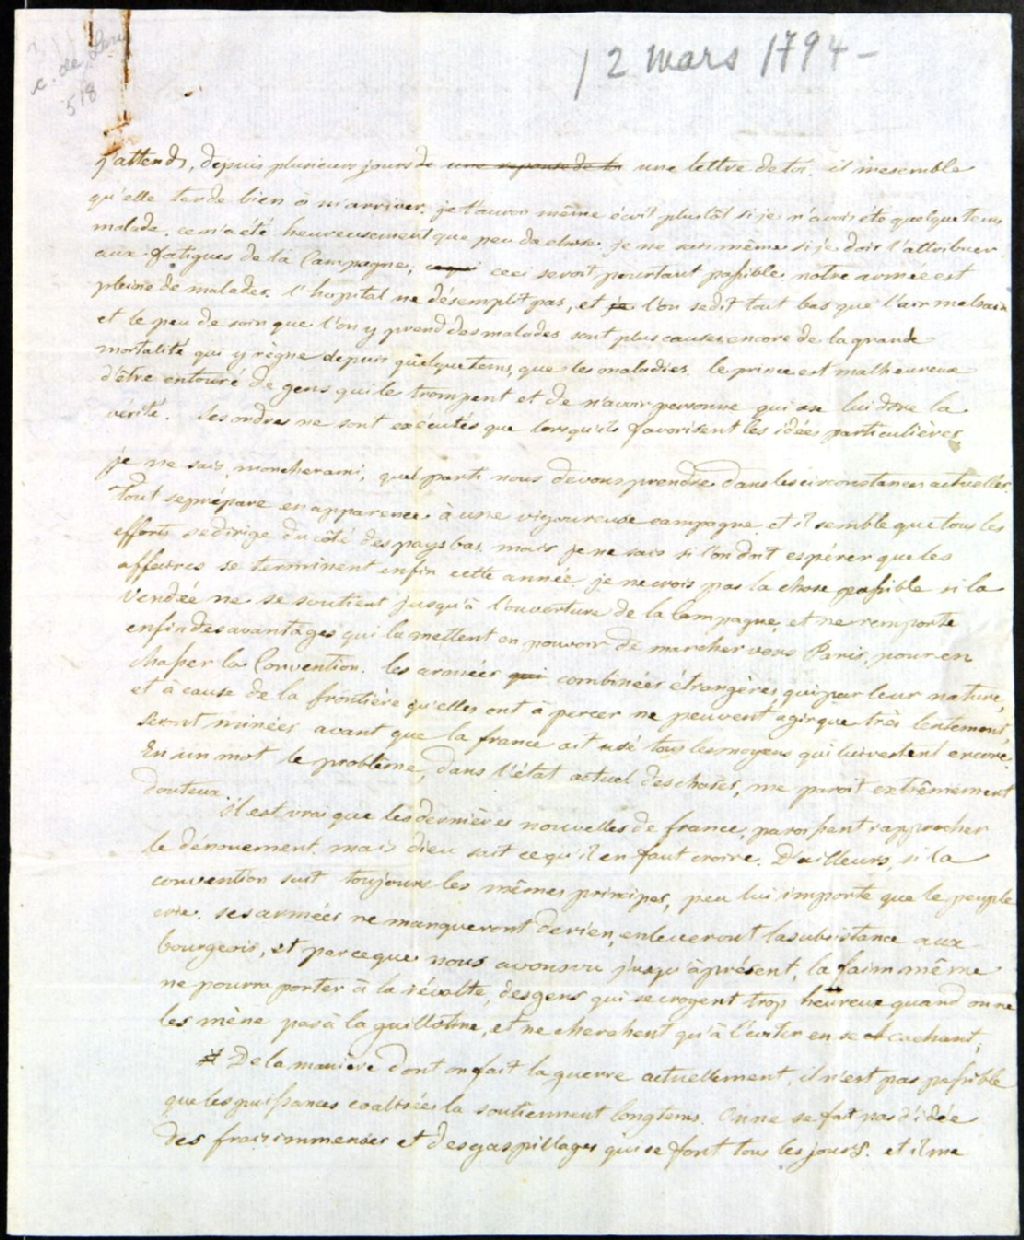 12 mars 1794 -
c. de
518
j'attends, depuis plusieurs jours de une reponse de to une lettre de toi. il me semble
qu'elle tarde bien à m'arriver. je t'aurois même écrit plustôt si je n'avois été quelque tems
malade. ce n'a été heureusement que peu de chose. je ne sais même si je dois l'attribuer
aux fatigues de la Campagne, ceci seroit pourtant possible. notre armée est
pleine de malades. l'hopital ne désemplit pas, et je l'on se dit tout bas que l'air malsain
et le peu de soin que l'on y prend des malades sont plus causes encore de la grande
mortalité qui y règne depuis quelque tems, que les maladies. le prince est malheureux
d'être entouré de gens qui le trompent et de n'avoir personne qui ose lui dire la
vérité. Ses ordres ne sont exécutés que lorsqu'ils favorisent les idées particulières.
je ne sais, mon cher ami, quel parti nous devons prendre dans les circonstances actuelles.
Tout se prépare en apparence à une vigoureuse campagne et il semble que tous les
efforts se dirige du côté des pays bas. mais je ne sais si l'on doit espérer que les
affaires se terminent enfin cette année. je ne crois pas la chose possible si la
Vendée ne se soutient jusqu'à l'ouverture de la Campagne, et ne remporte
enfin des avantages qui la mettent en pouvoir de marcher vers Paris, pour en
chasser la Convention. les armées qui combinées étrangères, qui par leur nature,
et à cause de la frontière qu'elles ont à percer ne peuvent agir que très lentement,
seront minées avant que la france ait usé tous les moyens qui lui restent encore.
En un mot le problème, dans l'état actuel des choses, me paroit extrêmement
douteux.
il est vrai que les dernières nouvelles de france, paroissent rapprocher
le dénouement. mais dieu sait ce qu'il en faut croire. D'ailleurs, si la
convention suit toujours les mêmes principes, peu lui importe que le peuple
crie. ses armées ne manqueront de rien, enleveront la subsistance aux
bourgeois, et parceque nous avons vu jusqu'à présent, la faim même
ne pourra porter à la révolte, des gens qui se croyent trop heureux quand on ne
les mène pas à la guillotine, et ne cherchent qu'à l'éviter en se cachant;
# De la manière dont on fait la guerre actuellement, il n'est pas possible
que les puissances coalisées la soutiennent longtems. On ne se fait pas d'idée
des frais immenses et des gaspillages qui se font tous les jours. et il me